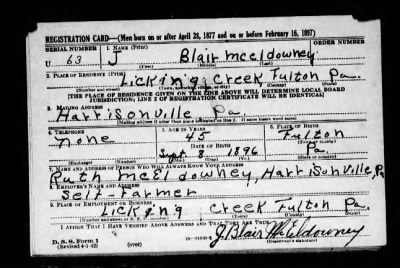 REGISTRATION CARD—(Men born on or after April 28, 1877 and on or before February 16, 1897)
SERIAL NUMBER 1. NAME (Print) ORDER NUMBER
U 63 J Blair McEldowney
(First) (Middle) (Last)
2. PLACE OF RESIDENCE (Print)
Licking Creek Fulton Pa.
(Number and street) (Town, township, village, or city) (County) (State)
[THE PLACE OF RESIDENCE GIVEN ON THE LINE ABOVE WILL DETERMINE LOCAL BOARD
JURISDICTION; LINE 2 OF REGISTRATION CERTIFICATE WILL BE IDENTICAL]
3. MAILING ADDRESS
Harrisonville Pa
[Mailing address if other than place indicated on line 2. If same insert word same]
4. TELEPHONE 5. AGE IN YEARS 6. PLACE OF BIRTH
none 45 Fulton
DATE OF BIRTH (Town or county)
Sept. 8 1896 Pa.
(Exchange) (Number) (Mo.) (Day) (Yr.) (State or country)
7. NAME AND ADDRESS OF PERSON WHO WILL ALWAYS KNOW YOUR ADDRESS
Ruth McEldowney, Harrisonville, Pa
8. EMPLOYER'S NAME AND ADDRESS
Self-Farmer
9. PLACE OF EMPLOYMENT OR BUSINESS
Licking Creek Fulton Pa.
(Number and street or R. F. D. number) (Town) (County) (State)
I AFFIRM THAT I HAVE VERIFIED ABOVE ANSWERS AND THAT THEY ARE TRUE.
D. S. S. Form 1
(Revised 4-1-42) (over) J. Blair McEldowney
(Registrant's signature)